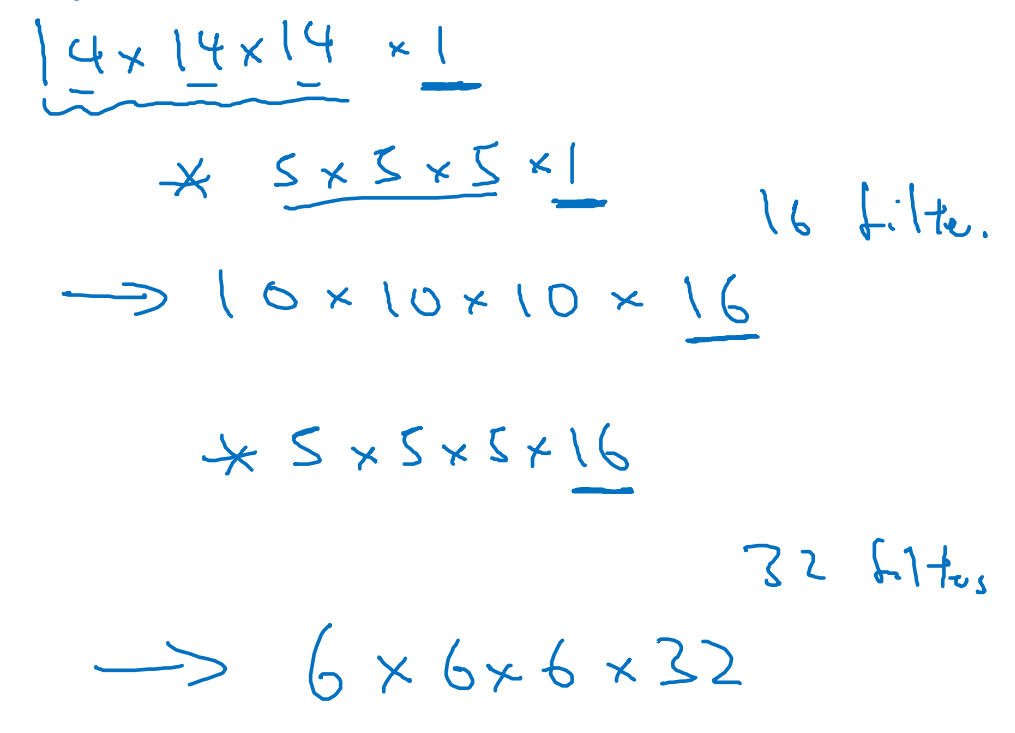 14 × 14 × 14 × 1
* 5 × 5 × 5 × 1
16 filte.
→ 10 × 10 × 10 × 16
* 5 × 5 × 5 × 16
32 filters
→ 6 × 6 × 6 × 32